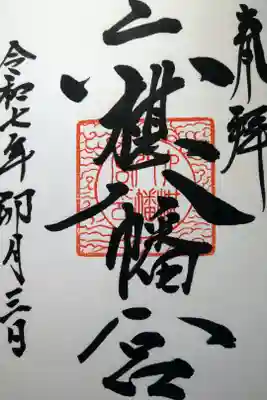 奉拝
六椹八幡宮
令和七年卯月三日